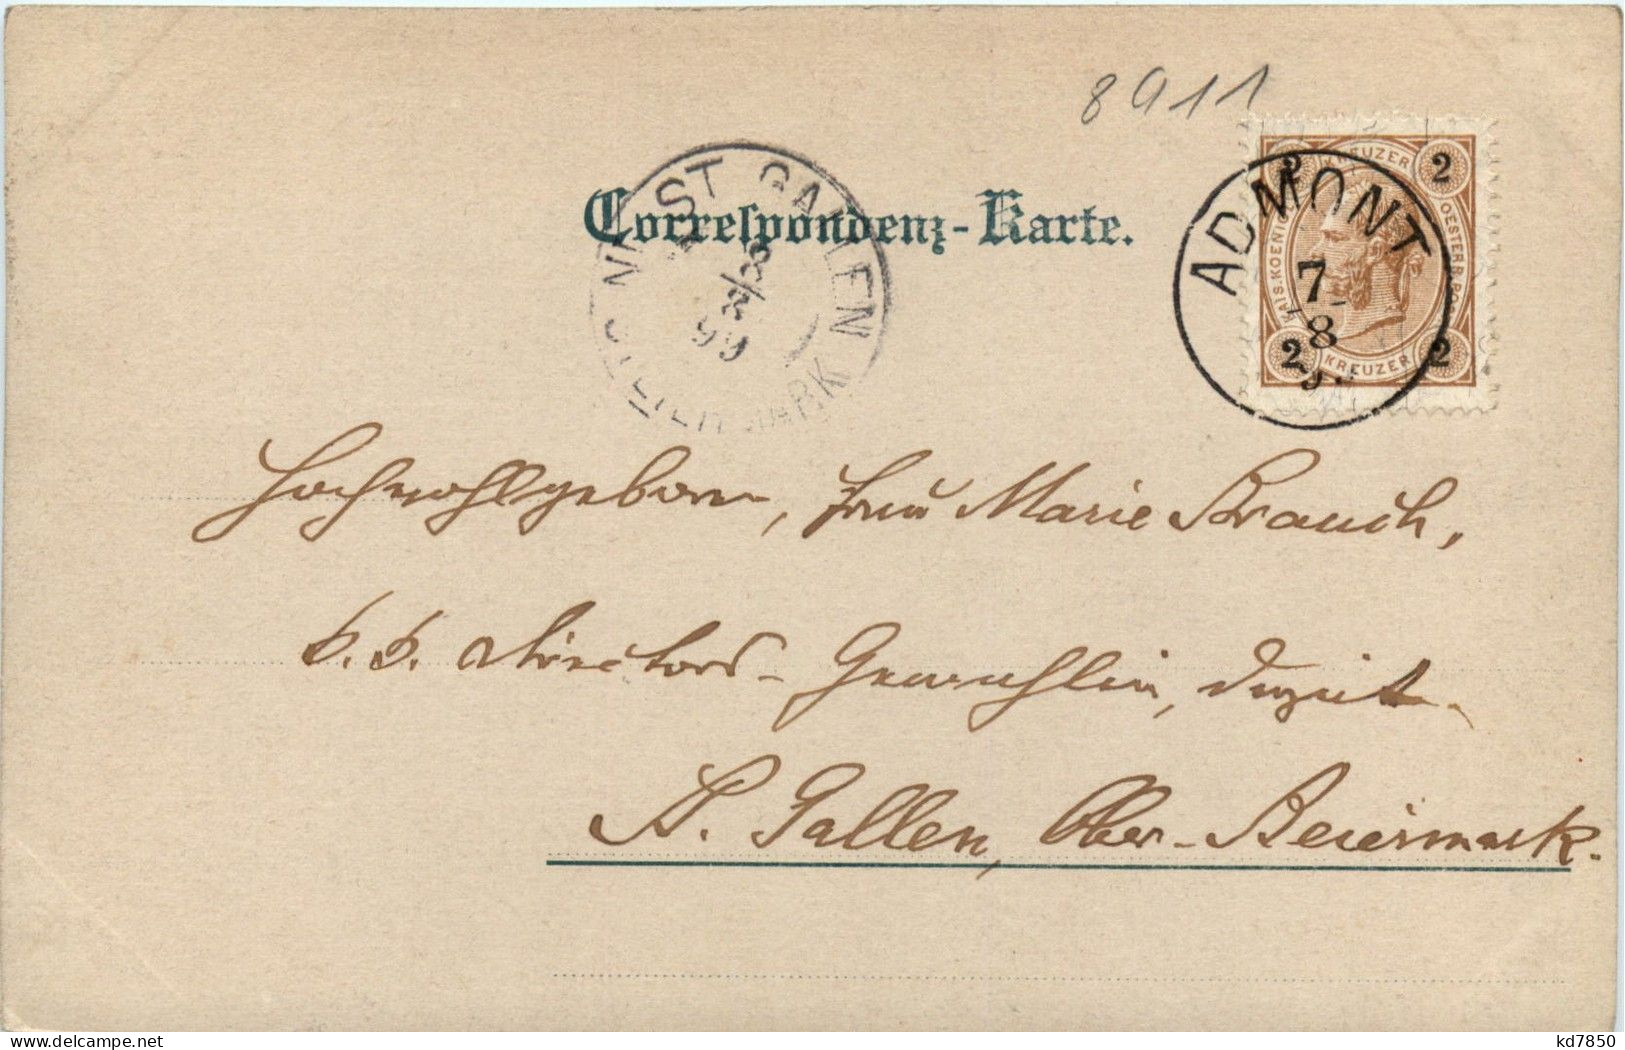 8911
Correspondenz-Karte.
ST. GALLEN
8/8
99
KREUZER
2 2
KAIS. KOENIG. OESTERR. POST
2 2
KREUZER
ADMONT
7
8
Hochwohlgeboren, Frau Marie Brauch,
k. k. Directors-Gemahlin, dzeit
St. Gallen, Ober-Steiermark.
kd7850